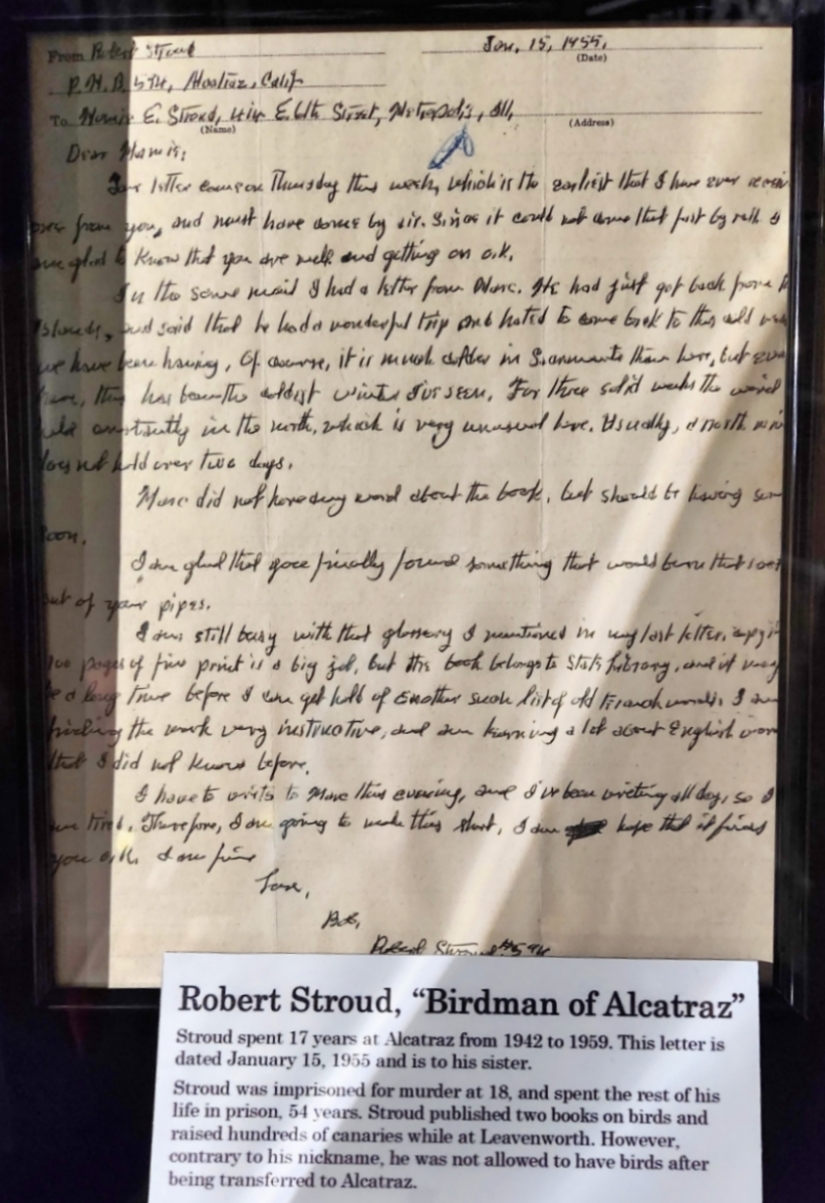 From Robert Stroud Jan. 15, 1955,
(Date)
P.M.B 594, Alcatraz, Calif
To Mamie E. Stroud, E. 6th Street, Metropolis, Ill,
(Name) (Address)
Dear Mamie:
Your letter came on Thursday this week, which is the earliest that I have ever
from you, and must have come by air. Since it could not come that fast by rail I
am glad to know that you are well and getting on o.k.
In the same mail I had a letter from Marc. He had just got back from
Islands, and said that he had a wonderful trip and hated to come back to this cold
we have been having. Of course, it is much colder in Sacramento than here, but even
here, this has been the coldest winter I've seen. For three solid weeks the wind
held constantly in the north, which is very unusual here. Usually, a north
does not hold over two days.
Marc did not have any word about the book, but should be having
soon.
I am glad that you finally found something that would burn that soot
out of your pipes.
I am still busy with that glossary I mentioned in my last letter.
pages of fine print is a big job, but the book belongs to State Library, and it may
be a long time before I can get hold of another such list of old French words. I am
finding the work very instructive, and am learning a lot about English
that I did not know before.
I have to write to Marc this evening, and I've been writing all day, so I
am tired. Therefore, I am going to make this short, I hope that it finds
you o.k. I am fine
Love,
Bob,
Robert Stroud #594
Robert Stroud, “Birdman of Alcatraz”
Stroud spent 17 years at Alcatraz from 1942 to 1959. This letter is
dated January 15, 1955 and is to his sister.
Stroud was imprisoned for murder at 18, and spent the rest of his
life in prison, 54 years. Stroud published two books on birds and
raised hundreds of canaries while at Leavenworth. However,
contrary to his nickname, he was not allowed to have birds after
being transferred to Alcatraz.